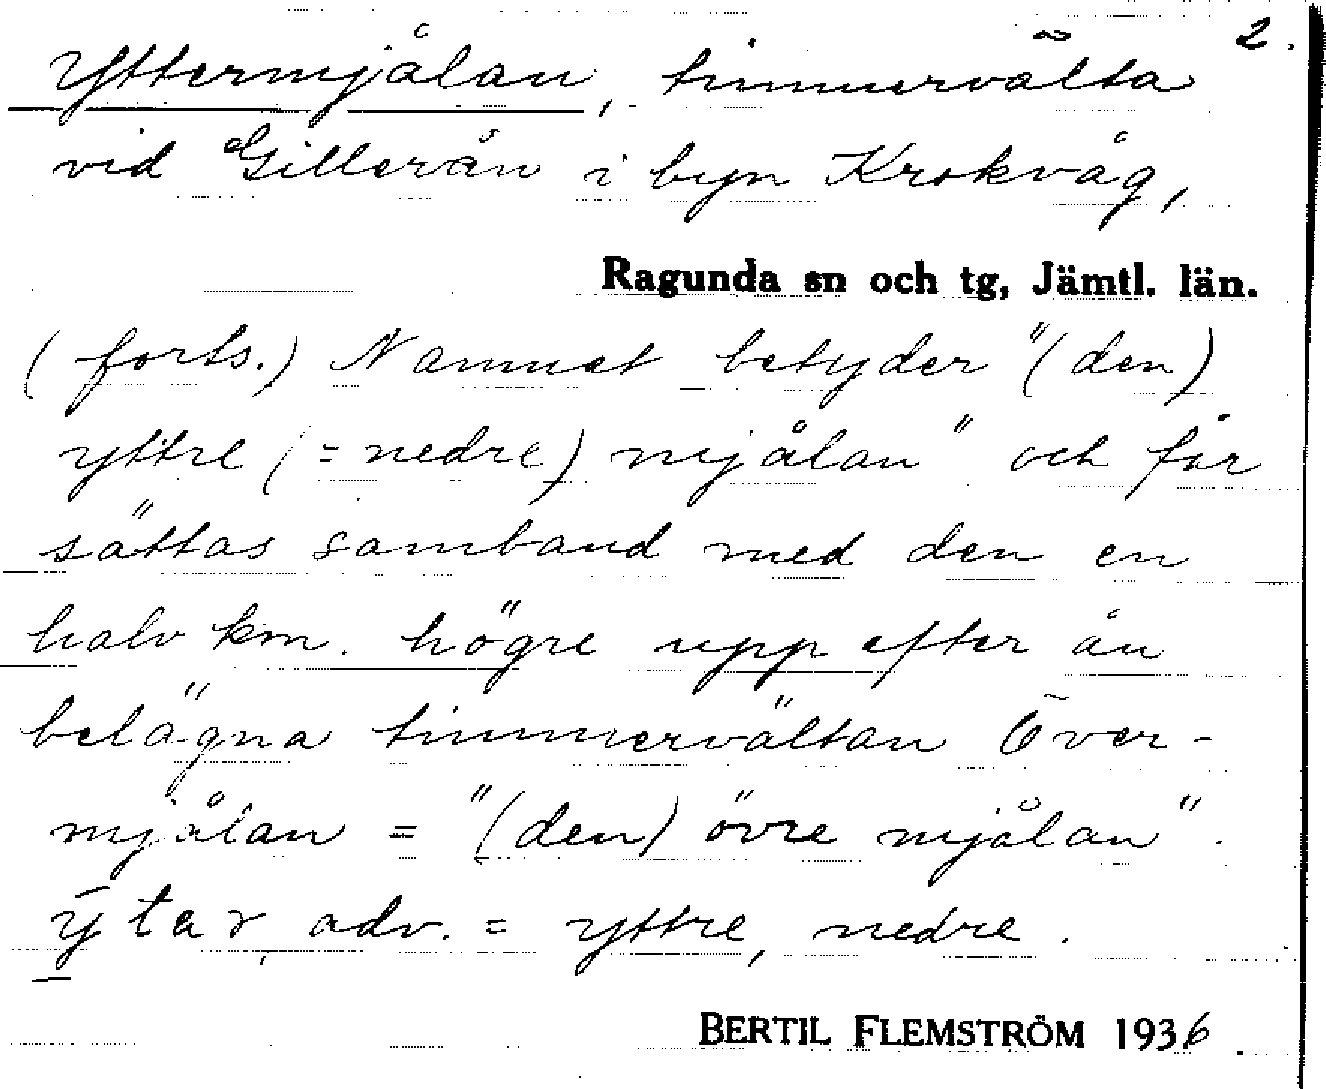 2.
Yttermjålan, timmervälta
vid Gillerån i byn Krokvåg,
Ragunda sn och tg, Jämtl. län.
(forts.) Namnet betyder "(den)
yttre (= nedre) mjålan" och får
sättas samband med den en
halv km. högre upp efter ån
belägna timmervältan Över-
mjålan = "(den) övre mjålan".
ȳtar, adv. = yttre, nedre.
BERTIL FLEMSTRÖM 1936